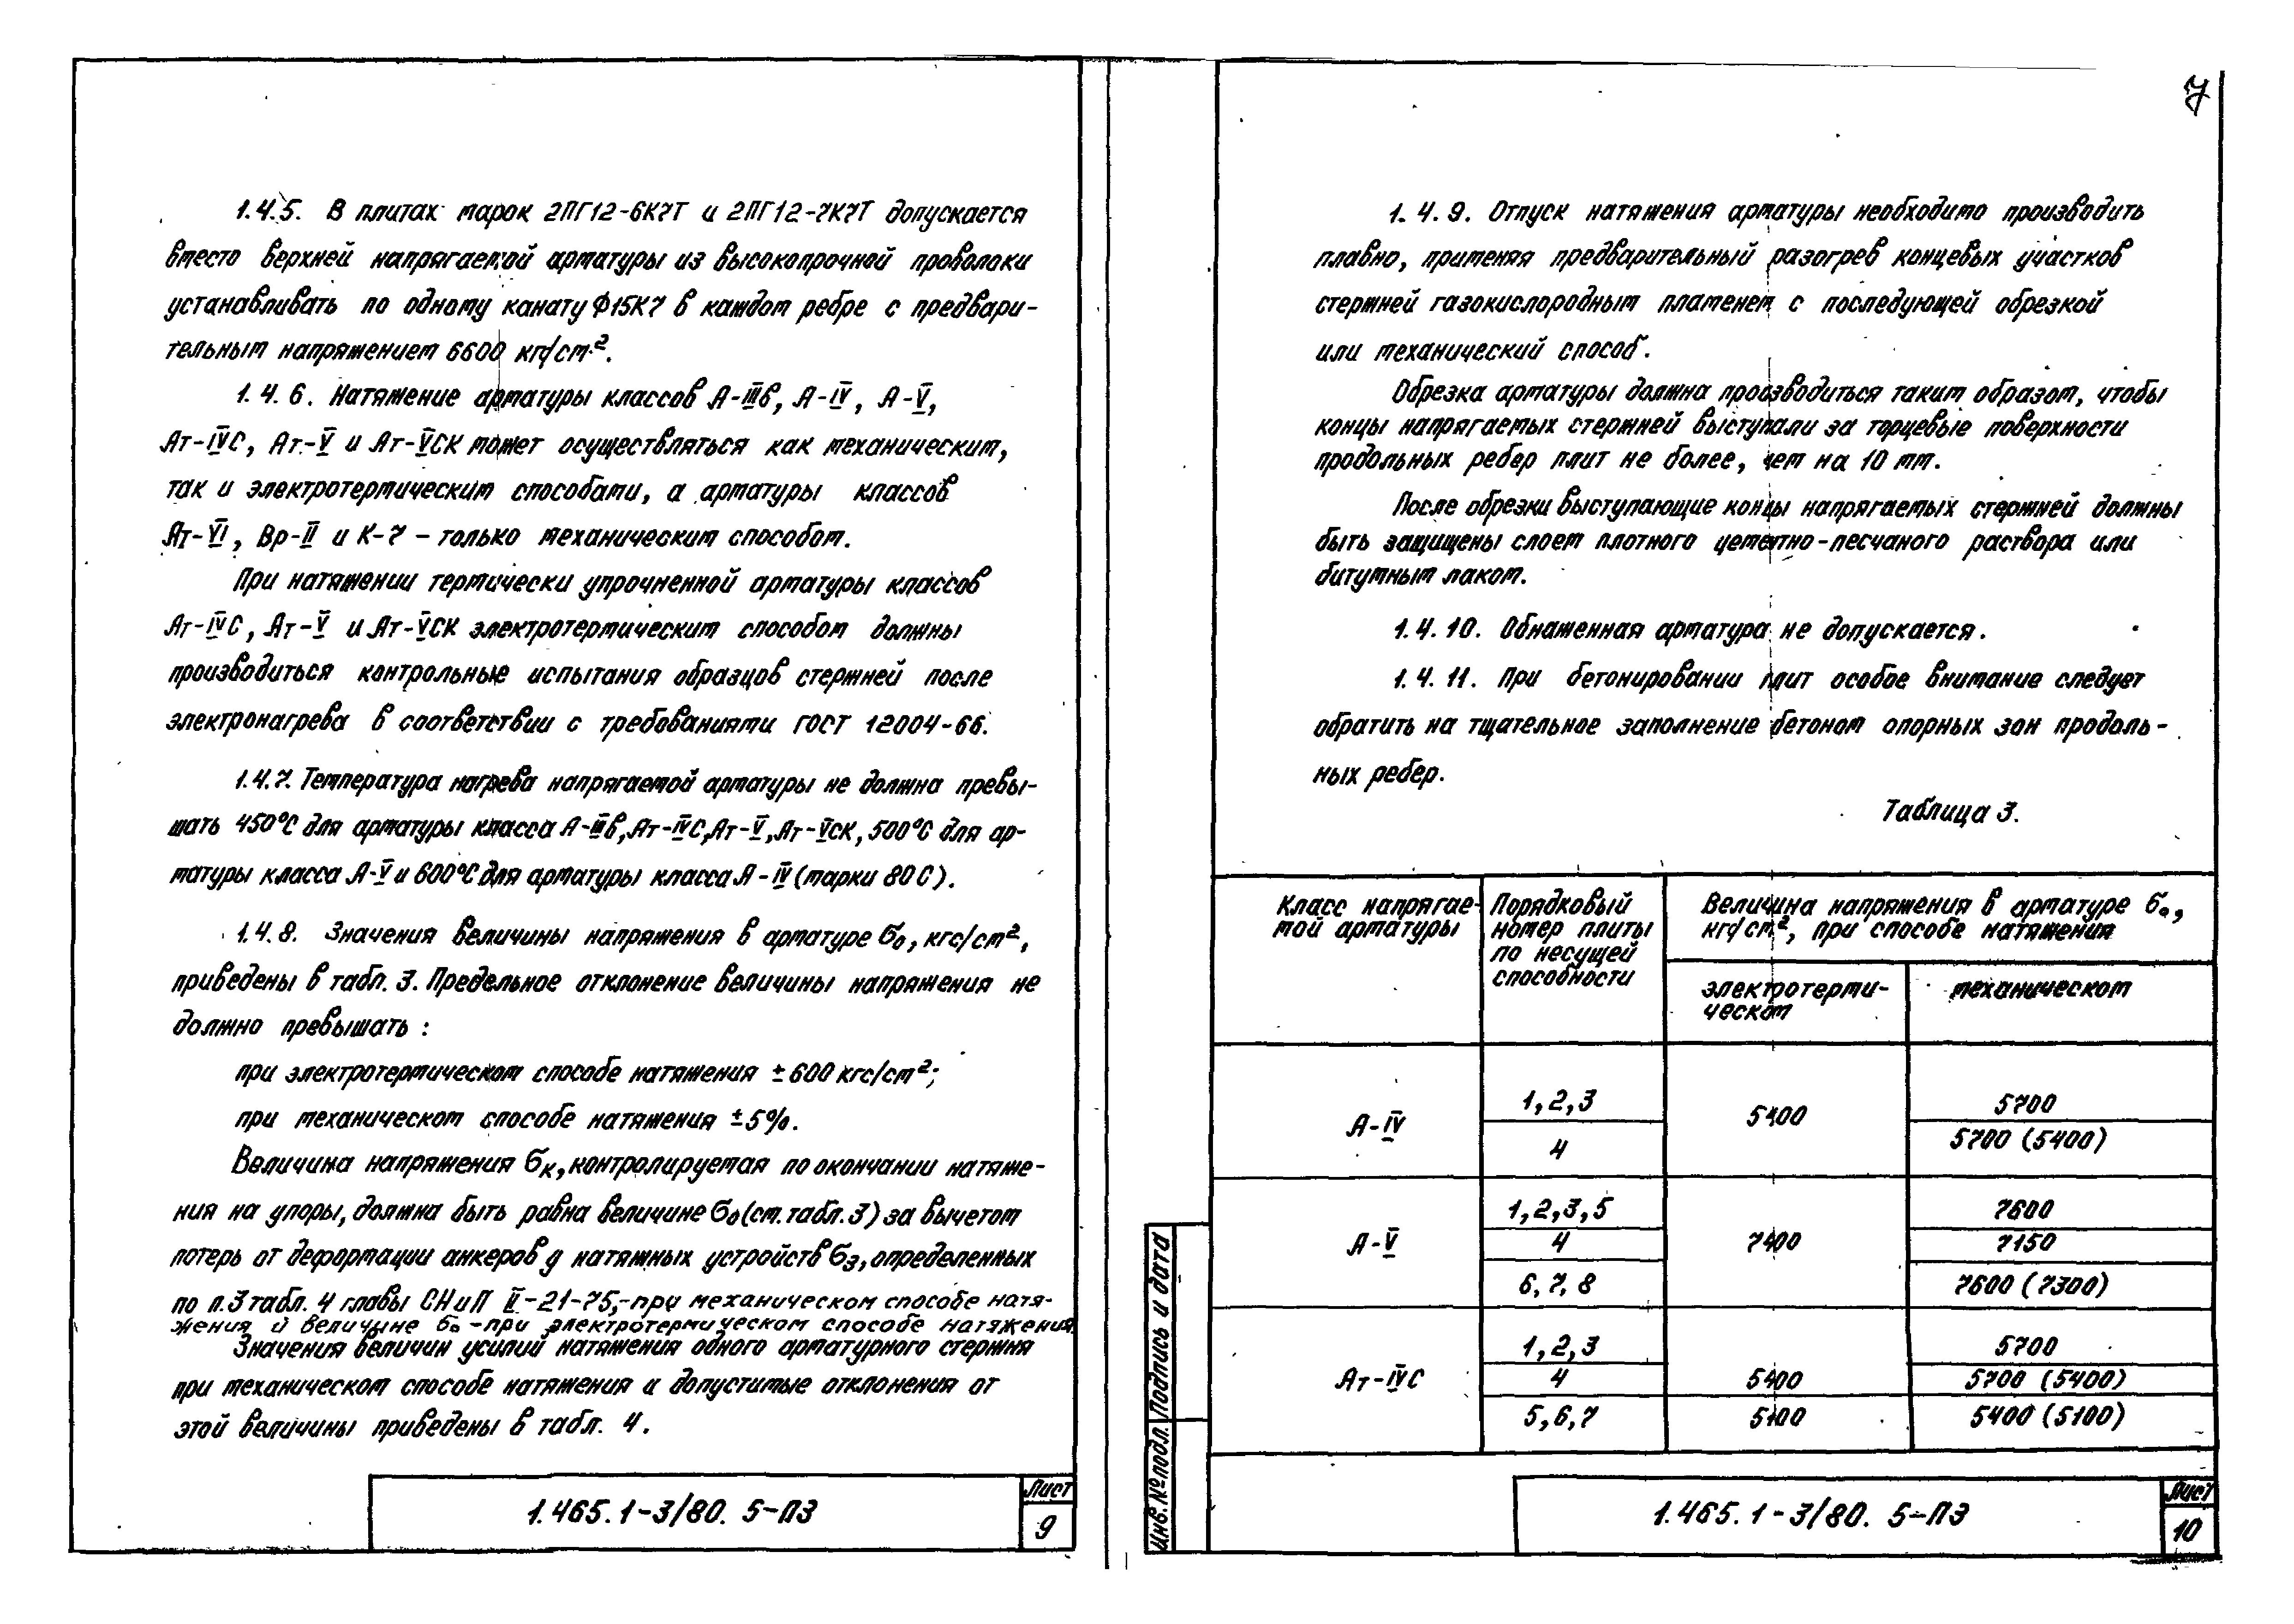 1.4.5. В плитах марок 2ПГ12-6К7Т и 2ПГ12-7К7Т допускается
вместо верхней напрягаемой арматуры из высокопрочной проволоки
устанавливать по одному канату Ф15К7 в каждом ребре с предвари-
тельным напряжением 6600 кгс/см².
1.4.6. Натяжение арматуры классов А-IIIв, А-IV, А-V,
Ат-IVС, Ат-V и Ат-VСК может осуществляться как механическим,
так и электротермическим способами, а арматуры классов
Ат-VI, Вр-II и К-7 – только механическим способом.
При натяжении термически упрочненной арматуры классов
Ат-IVС, Ат-V и Ат-VСК электротермическим способом должны
производиться контрольные испытания образцов стержней после
электронагрева в соответствии с требованиями ГОСТ 12004-66.
1.4.7. Температура нагрева напрягаемой арматуры не должна превы-
шать 450°С для арматуры класса А-IIIв, Ат-IVС, Ат-V, Ат-VСК, 500°С для ар-
матуры класса А-V и 600°С для арматуры класса А-IV (марки 80С).
1.4.8. Значения величины напряжения в арматуре σ₀, кгс/см²,
приведены в табл. 3. Предельное отклонение величины напряжения не
должно превышать :
при электротермическом способе натяжения ±600 кгс/см²;
при механическом способе натяжения ±5%.
Величина напряжения σк, контролируемая по окончании натяже-
ния на упоры, должна быть равна величине σ₀ (см. табл. 3) за вычетом
потерь от деформации анкеров у натяжных устройств σ₃, определенных
по п. 3 табл. 4 главы СНиП II-21-75,-при механическом способе натя-
жения и величине σ₀ -при электротермическом способе натяжения.
Значения величин усилий натяжения одного арматурного стержня
при механическом способе натяжения и допустимые отклонения от
этой величины приведены в табл. 4.
1.465.1-3/80. 5-ПЗ
Лист
9
7
1.4.9. Отпуск натяжения арматуры необходимо производить
плавно, применяя предварительный разогрев концевых участков
стержней газокислородным пламенем с последующей обрезкой
или механический способ.
Обрезка арматуры должна производиться таким образом, чтобы
концы напрягаемых стержней выступали за торцевые поверхности
продольных ребер плит не более, чем на 10 мм.
После обрезки выступающие концы напрягаемых стержней должны
быть защищены слоем плотного цементно-песчаного раствора или
битумным лаком.
1.4.10. Обнаженная арматура не допускается.
1.4.11. При бетонировании плит особое внимание следует
обратить на тщательное заполнение бетоном опорных зон продоль-
ных ребер.
Таблица 3.
Класс напрягае-
мой арматуры
Порядковый
номер плиты
по несущей
способности
Величина напряжения в арматуре σ₀,
кгс/см², при способе натяжения
электротерми-
ческом
механическом
А-IV
1,2,3
5400
5700
4
5700 (5400)
А-V
1,2,3,5
7400
7600
4
7150
6,7,8
7600 (7300)
Ат-IVС
1,2,3
5700
4
5400
5700 (5400)
5,6,7
5100
5400 (5100)
Инв.№ подл.
Подпись и дата
1.465.1-3/80. 5-ПЗ
Лист
10